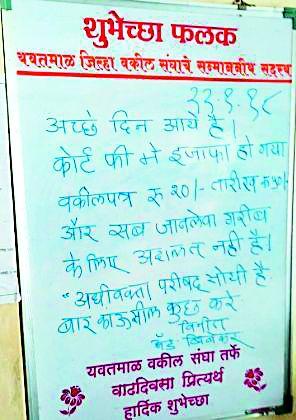 शुभेच्छा फलक
यवतमाळ जिल्हा वकील संघाचे सन्माननीय सदस्य
अच्छे दिन आये है।
कोर्ट फी मे इजाफा हो गया
वकीलपत्र रु २०/- तारीख रु
और सब जानलेवा गरीब
के लिए अदालत नही है।
"अधीवक्ता परीषद सोयी है
बार काऊंसील कुछ करे
विनीत
यवतमाळ वकील संघा तर्फे
वाढदिवसा प्रित्यर्थ
हार्दिक शुभेच्छा